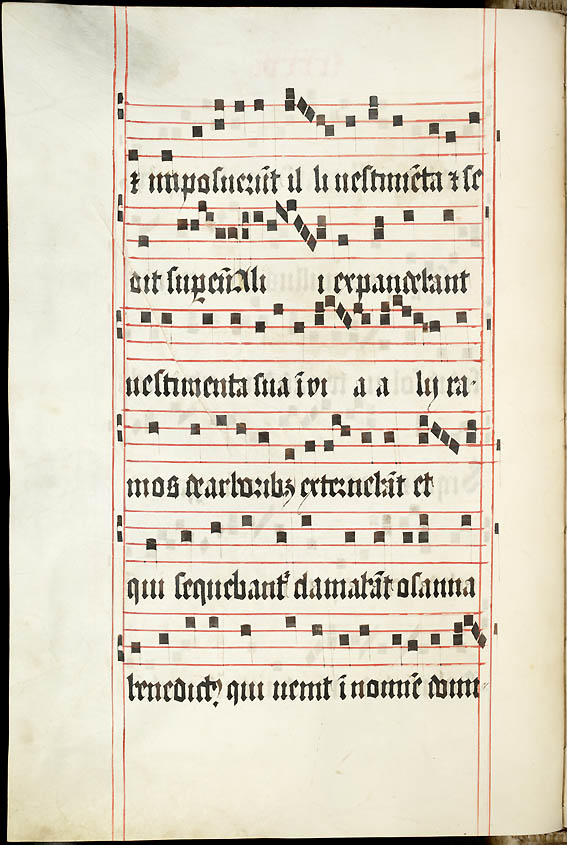 ⁊ imposuerūt il li uestimēta ⁊ se
dit sup eū Alii i expandebant
uestimenta sua ī vi a a lij ra-
mos de arboribꝫ externebāt et
qui sequebantᷣ clamabāt osanna
benedictꝰ qui uenit ī nomīe domi